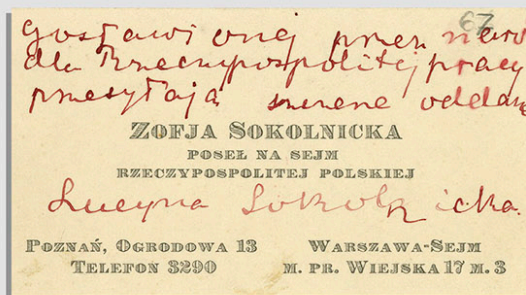 67
gostawionej przez naro
dla Rzeczypospolitej pracy
przesyłają szczere oddan
ZOFJA SOKOLNICKA
POSEŁ NA SEJM
RZECZYPOSPOLITEJ POLSKIEJ
Lucyna Sokolnicka
POZNAŃ, OGRODOWA 13 WARSZAWA-SEJM
TELEFON 3290 M. PR. WIEJSKA 17 M. 3